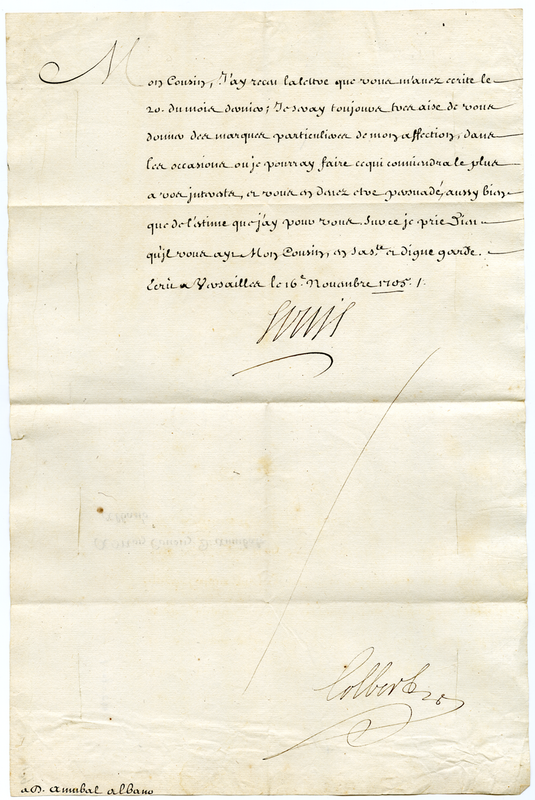 Mon Cousin, J'ay receu la lettre que vous m'avez ecrite le
20. du mois dernier; Je seray toujours tres aise de vous
donner des marques particulieres de mon affection, dans
les occasions ou je pourray faire ce qui conviendra le plus
a vos interests, et vous en devez etre persuadé, aussy bien
que de l'estime que j'ay pour vous. Sur ce je prie Dieu
qu'il vous ayt Mon Cousin, en sa s.te et digne garde.
Ecrit a Versailles le 16.e Novembre 1705. /.
Louis
Colbert
a D. Annibal Albano